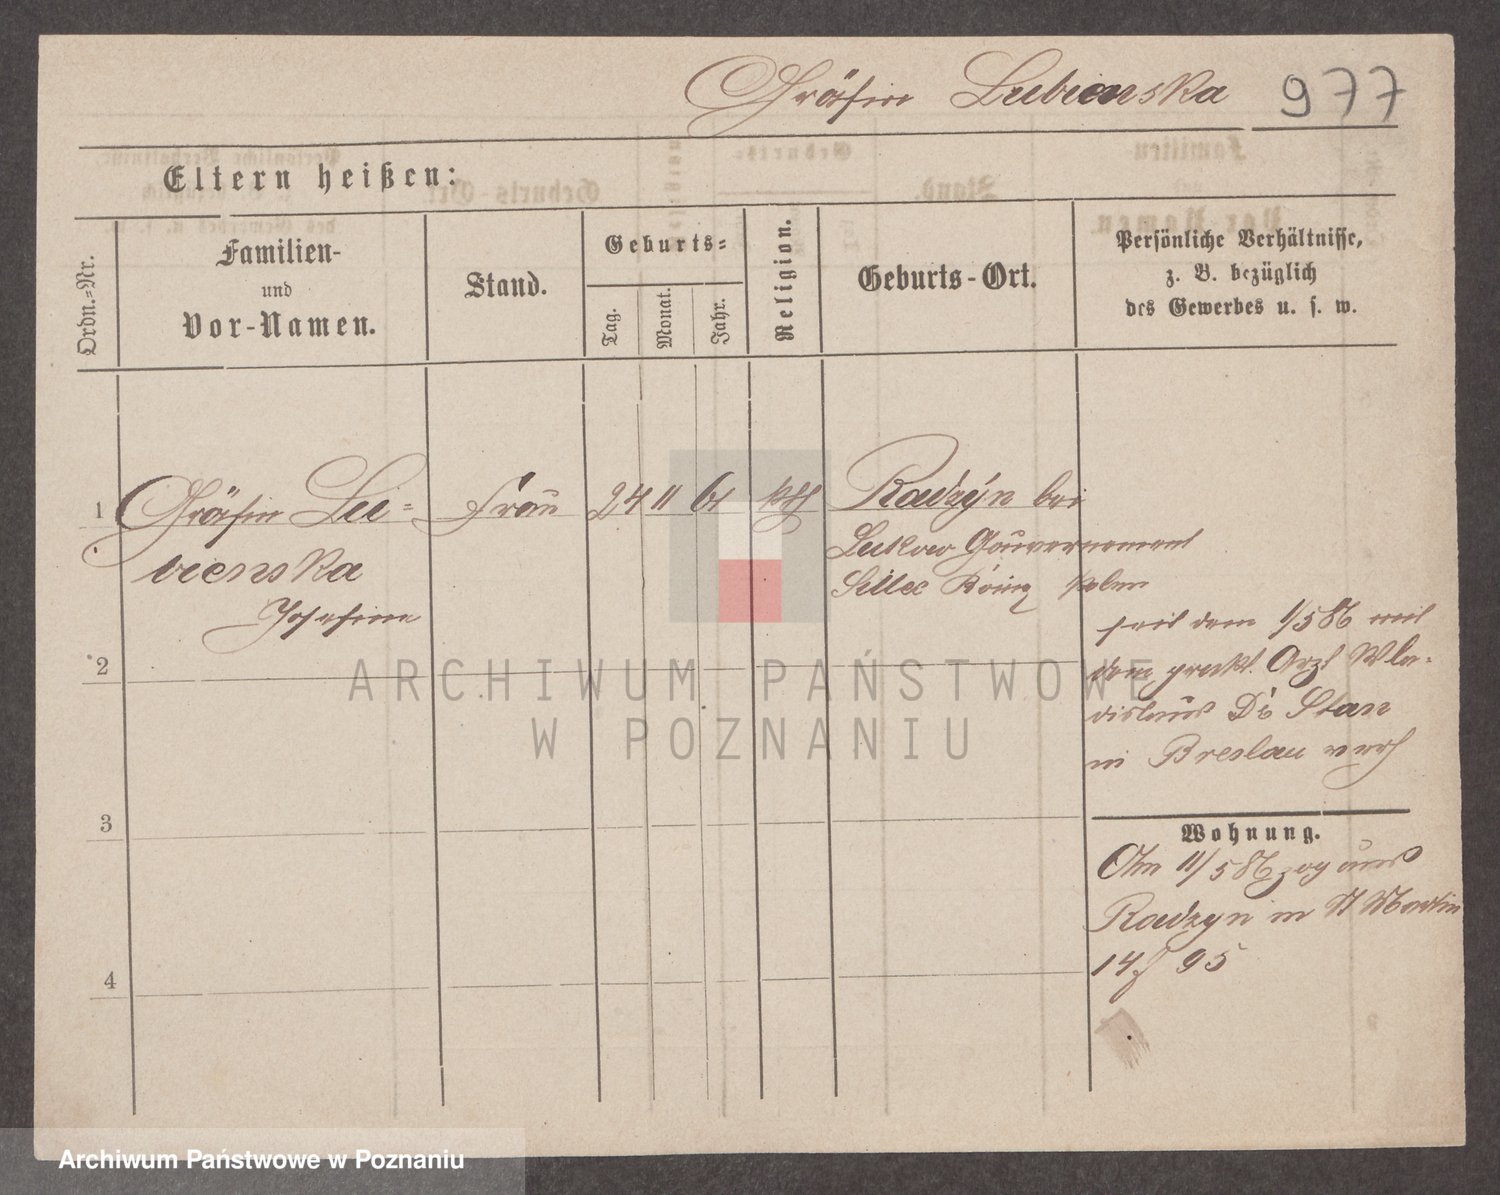 Gräfin Lubienska 977
Eltern heißen:
Ordn.=Nr.
Familien-
und
Vor-Namen.
Stand.
Geburts=
Tag.
Monat.
Jahr.
Religion.
Geburts-Ort.
Persönliche Verhältnisse,
z. B. bezüglich
des Gewerbes u. s. w.
1 Gräfin Lu= Frau 24 11 61 kth Radzyn bei
bienska Lukow Gouvernement
Josefine Königr Polen
seit dem 1/5 86 mit
2 dem prakt. Arzt Wla-
dislaus Dr Stan
in Breslau verh
3
Wohnung.
Am 11/5 86 zog aus
Radzyn in St Martin
4 14 95
ARCHIWUM PAŃSTWOWE
W POZNANIU
Archiwum Państwowe w Poznaniu